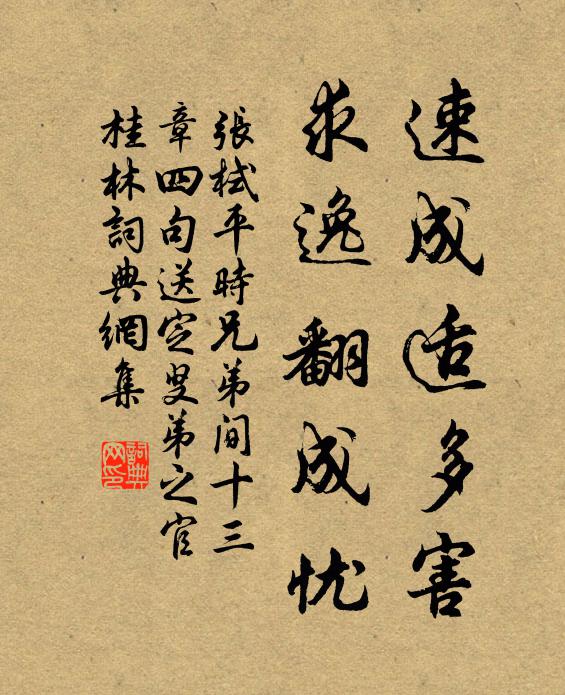 速成适多害
求逸翻成忧
張栻平時兄弟间十三
章四句送定叟弟之官
桂林詞典網集
詞典网印